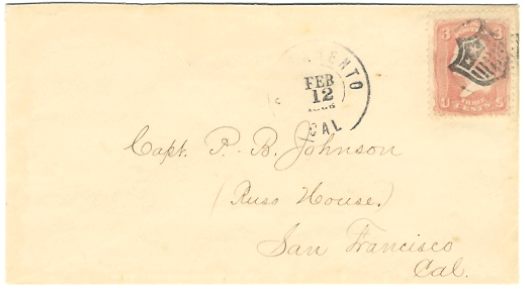 3 3
U THREE CENTS S
ENTO
FEB
12
CAL
Capt. P. B. Johnson
(Russ House.)
San Francisco
Cal.